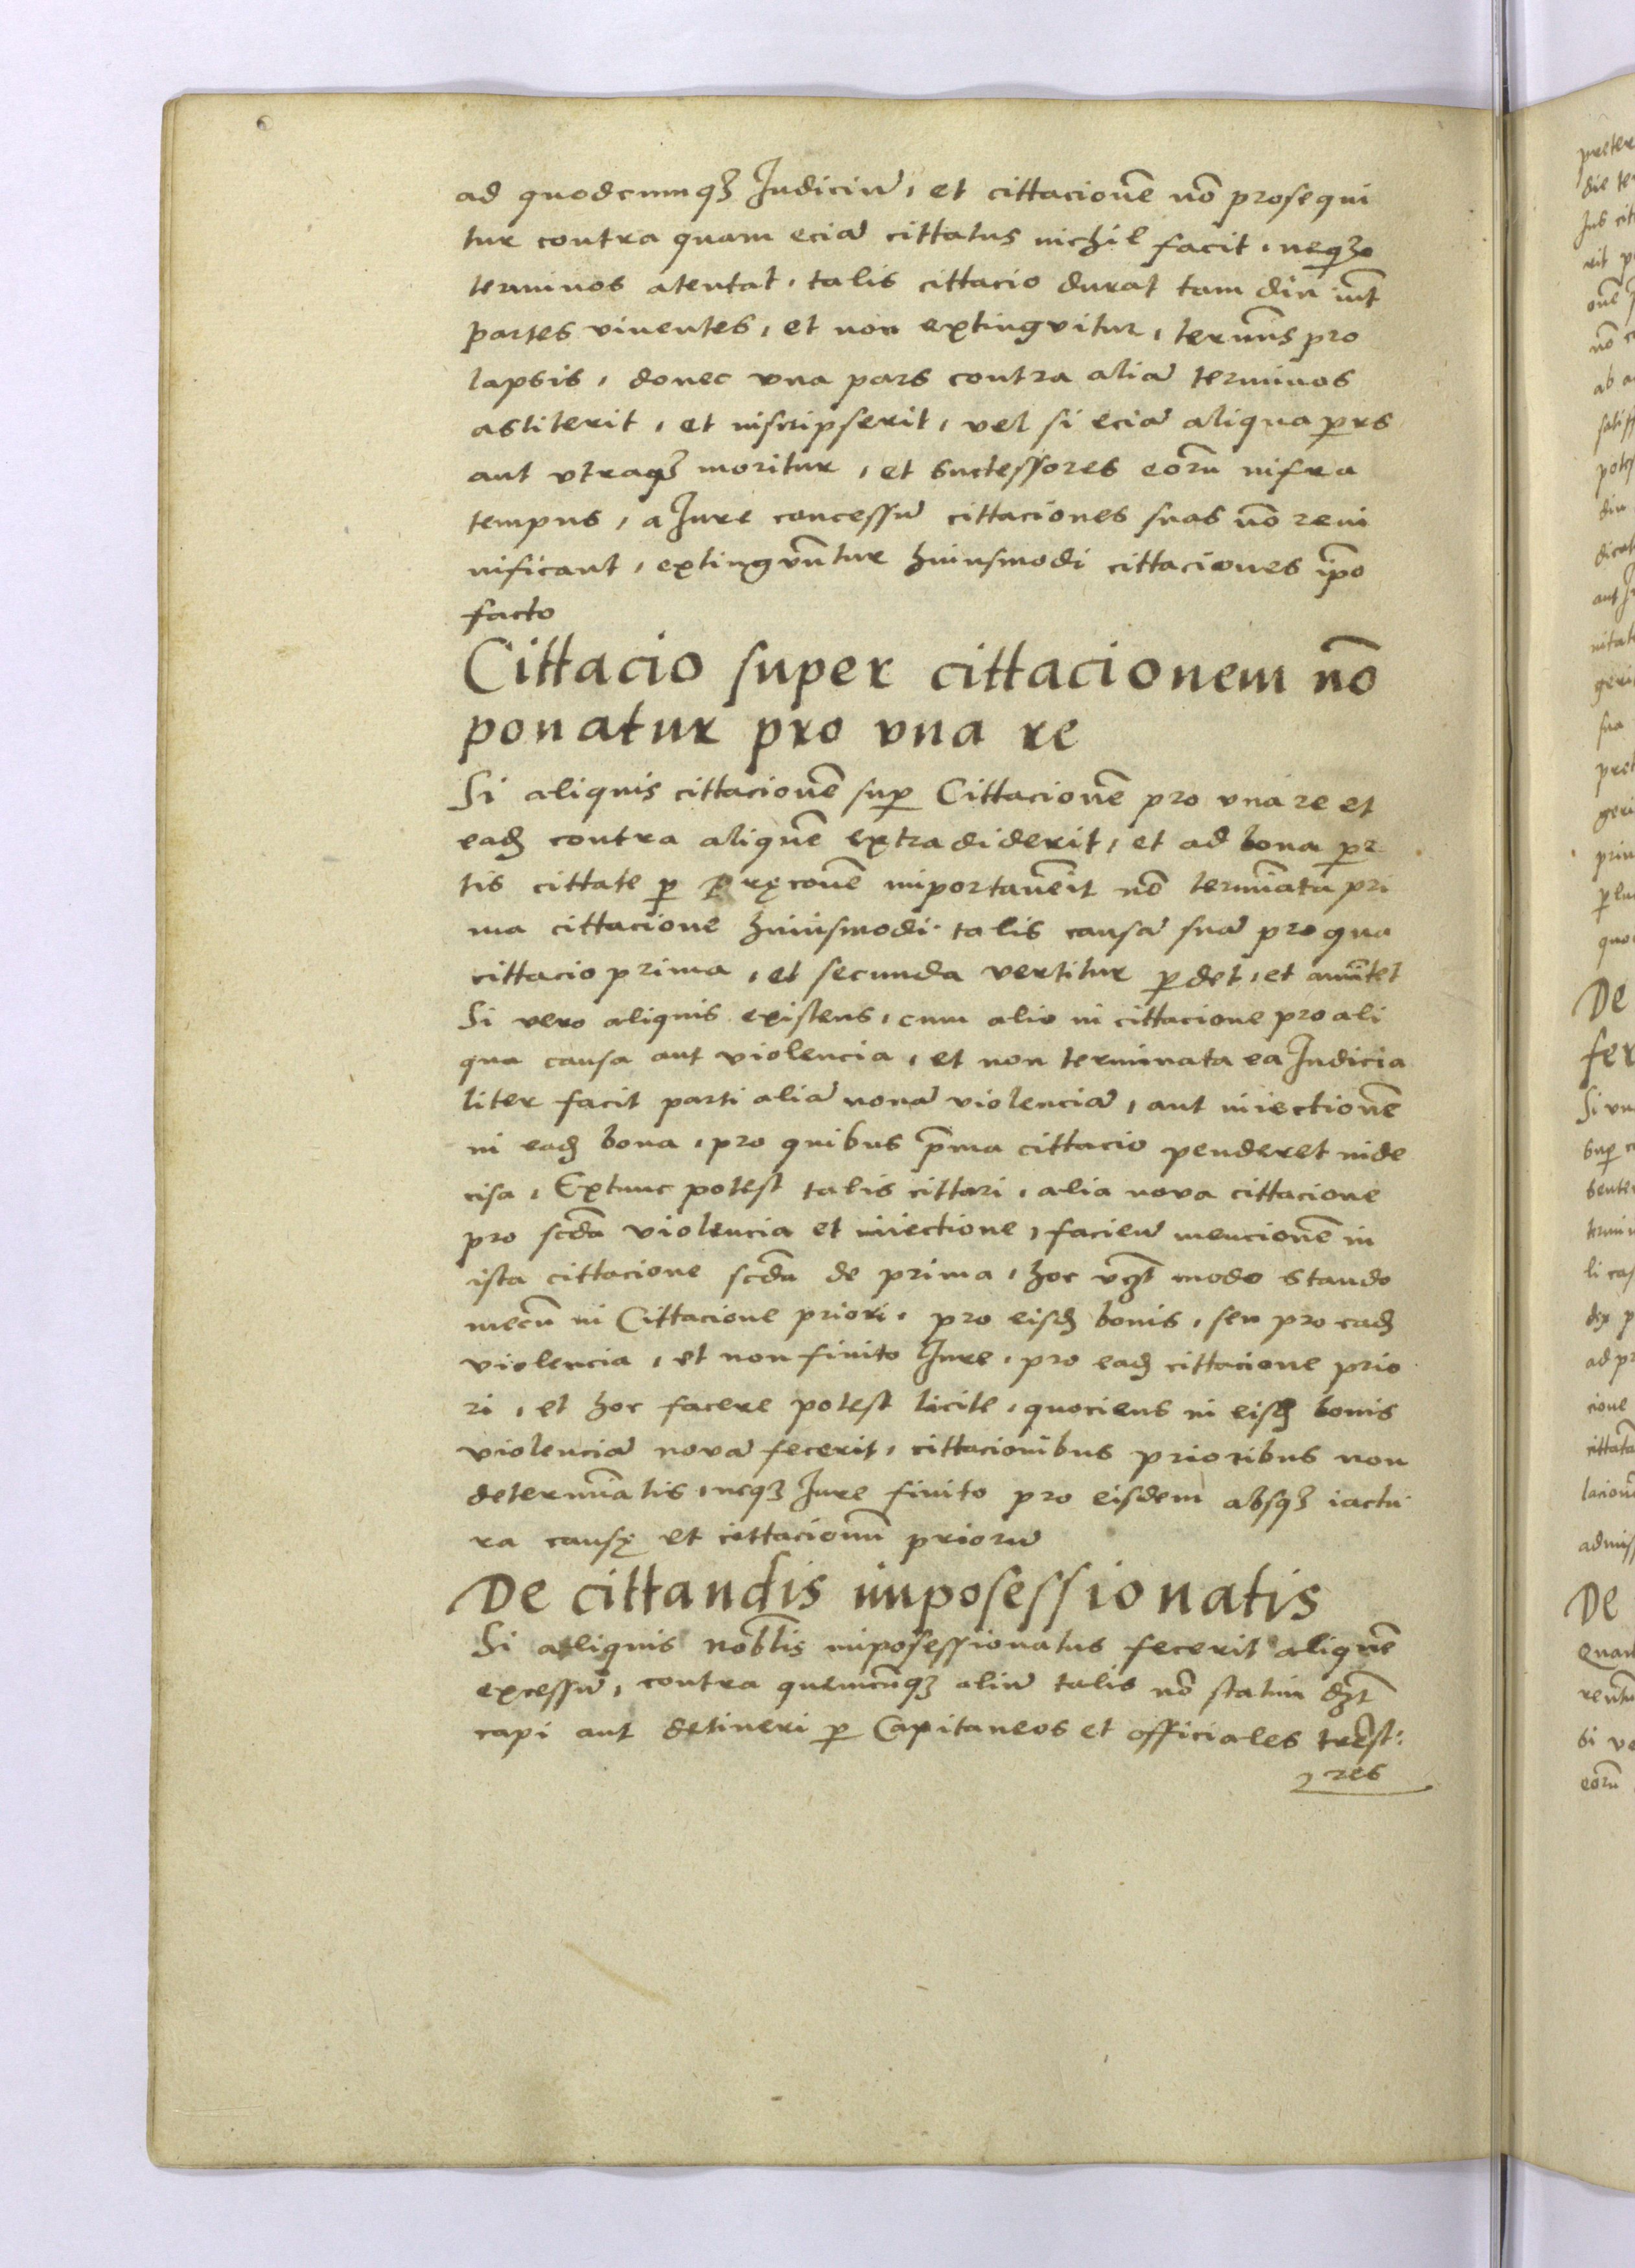 ad quodcumq₃ Judiciū, et cittacionē nō prosequi
tur contra quam eciā cittatus nichil facit, neq₃
terminos atentat, talis cittacio durat tam diu int̄
partes viuentes, et non extingvitur, termīs pro
lapsis, donec vna pars contra aliā terminos
astiterit, et inscripserit, vel si eciā aliqua pars
aut vtraq₃ moritur, et successores eorū infra
tempus, a Jure concessū cittaciones suas nō reui
uificant, extingvūtur huiusmodi cittaciones ip̄o
facto
Cittacio super cittacionem nō
ponatur pro vna re
Si aliquis cittacionē suꝑ Cittacionē pro vna re et
eadȝ contra aliquē extradiderit, et ad bona par
tis cittate ꝑ Pręconē importauēit nō termīata pri
ma cittacione huiusmodi talis causā suā pro qua
cittacio prima, et secunda vertitur ꝑdet, et amīttet
Si vero aliquis existens, cum alio in cittacione pro ali
qua causa aut violencia, et non terminata ea Judicia
liter facit parti aliā nouā violenciā, aut iniectionē
in eadȝ bona, pro quibus p̄ma cittacio penderet inde
cisa, Extunc potest talis cittari, alia nova cittacione
pro scd̄a violencia et iniectione, faciens mencionē in
ista cittacione scd̄a de prima, hoc vȝt modo stando
mecū in Cittacione priori, pro eisdȝ bonis, seu pro eadȝ
violencia, et non finito Jure, pro eadȝ cittacione prio
ri, et hoc facere potest licite, quociens in eisdȝ bonis
violenciā novā fecerit, cittacionibus prioribus non
determīatis, neq₃ Jure finito pro eisdem absq₃ iactu
ra causę et cittacionū priorū
De cittandis imposessionatis
Si aliquis nobl̄is imposessionatus fecerit aliquē
excessū, contra quemcūq₃ aliū talis nō statim dȝt
capi aut detineri ꝑ Capitaneos et officiales tre̅st:
res